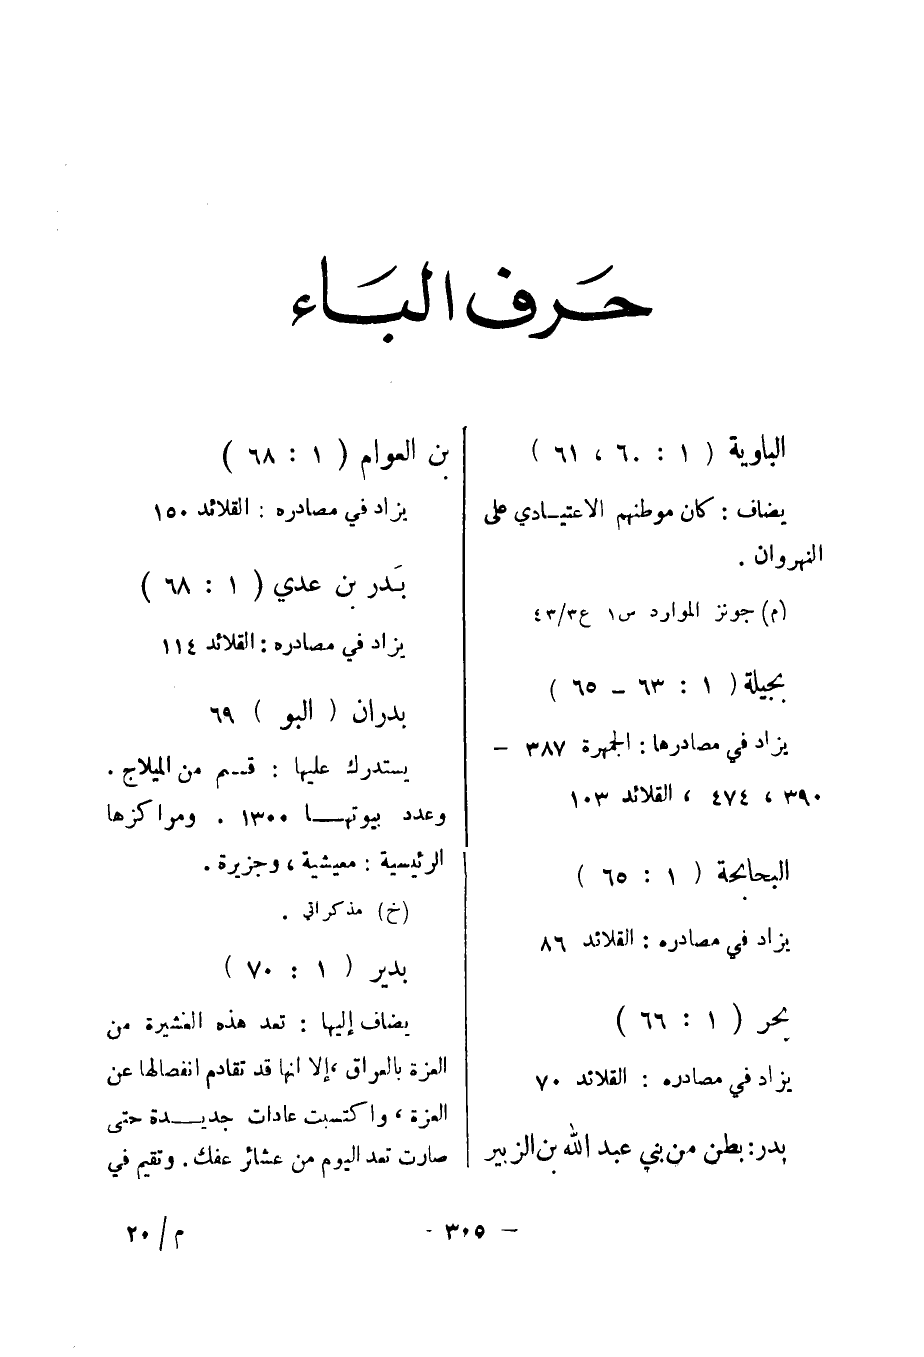 حَرف البَاء
الباوية ( ١ : ٦٠ ، ٦١ )
يضاف : كان موطنهم الاعتيـادي على
النهروان .
(م) جونز الموارد س١ ع٤٣/٣
بجيلة ( ١ : ٦٣ – ٦٥ )
يزاد في مصادرها : الجمهرة ٣٨٧ –
٣٩٠ ، ٤٧٤ ، القلائد ١٠٣
البحابحة ( ١ : ٦٥ )
يزاد في مصادره : القلائد ٨٦
بحر ( ١ : ٦٦ )
يزاد في مصادره : القلائد ٧٠
بدر : بطن من بني عبد الله بن الزبير
بن العوام ( ١ : ٦٨ )
يزاد في مصادره : القلائد ١٥٠
بَدر بن عدي ( ١ : ٦٨ )
يزاد في مصادره : القلائد ١١٤
بدران ( البو ) ٦٩
يستدرك عليها : قــم من الميلاج .
وعدد بيوتهـــا ١٣٠٠ . ومراكزها
الرئيسية : معيشية ، وجزيرة .
(خ) مذكراتي .
بدير ( ١ : ٧٠ )
يضاف إليها : تعد هذه العشيرة من
العزة بالعراق ، إلا انها قد تقادم انفصالها عن
العزة ، واكتسبت عادات جديـــدة حتى
صارت تعد اليوم من عشائر عفك . وتقيم في
– ٣٠٥ -
م / ٢٠